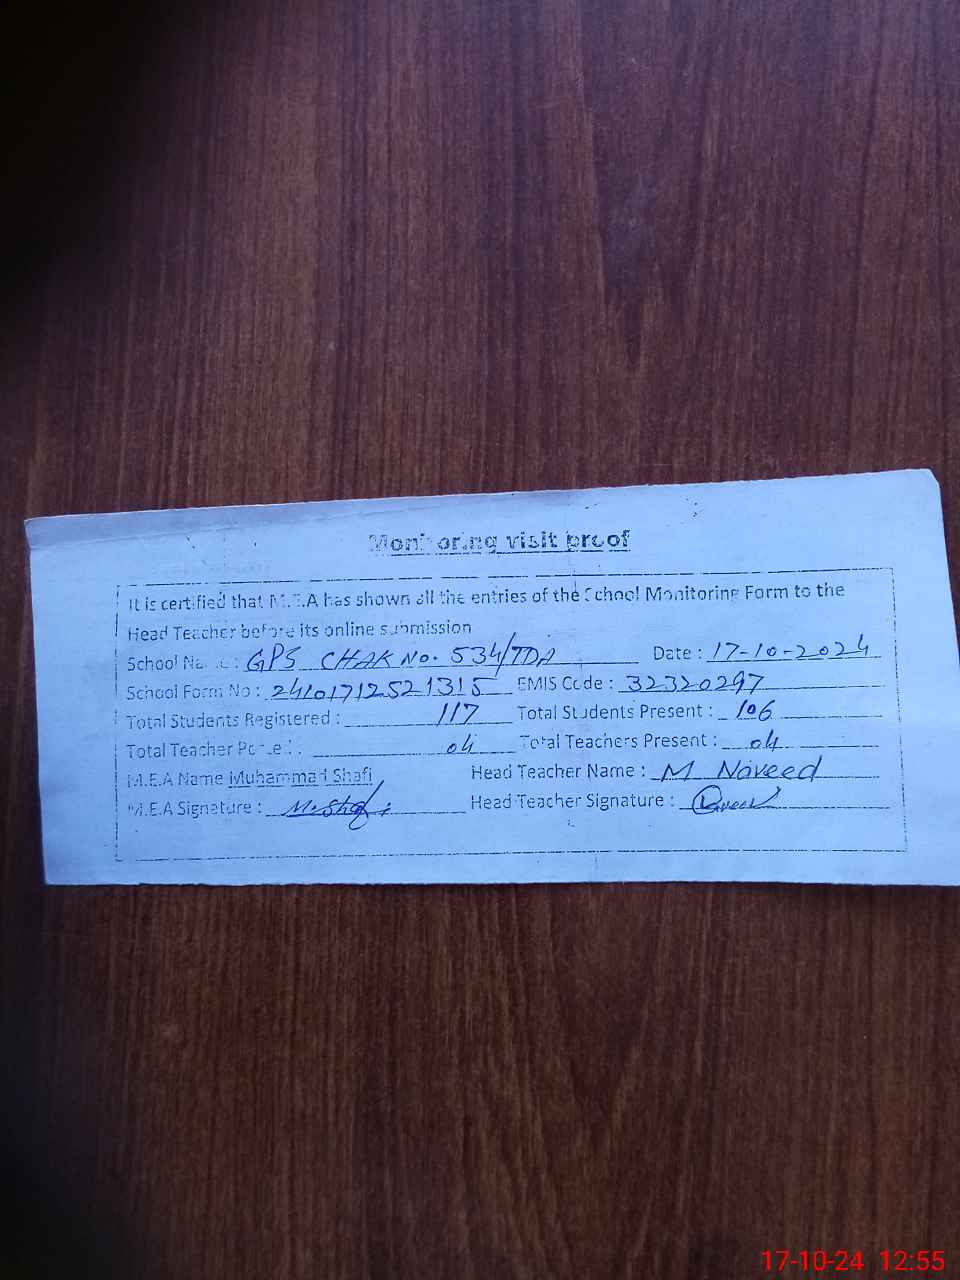 Monitoring visit proof
It is certified that M.E.A has shown all the entries of the School Monitoring Form to the
Head Teacher before its online submission
School Name : GPS CHAK No. 534/TDA Date : 17-10-2024
School Form No : 24101712521315 EMIS Code : 32320297
Total Students Registered : 117 Total Students Present : 106
Total Teacher Posted : 04 Total Teachers Present : 04
M.E.A Name Muhammad Shafi Head Teacher Name : M Naveed
M.E.A Signature : M.Shafi Head Teacher Signature :
17-10-24 12:55